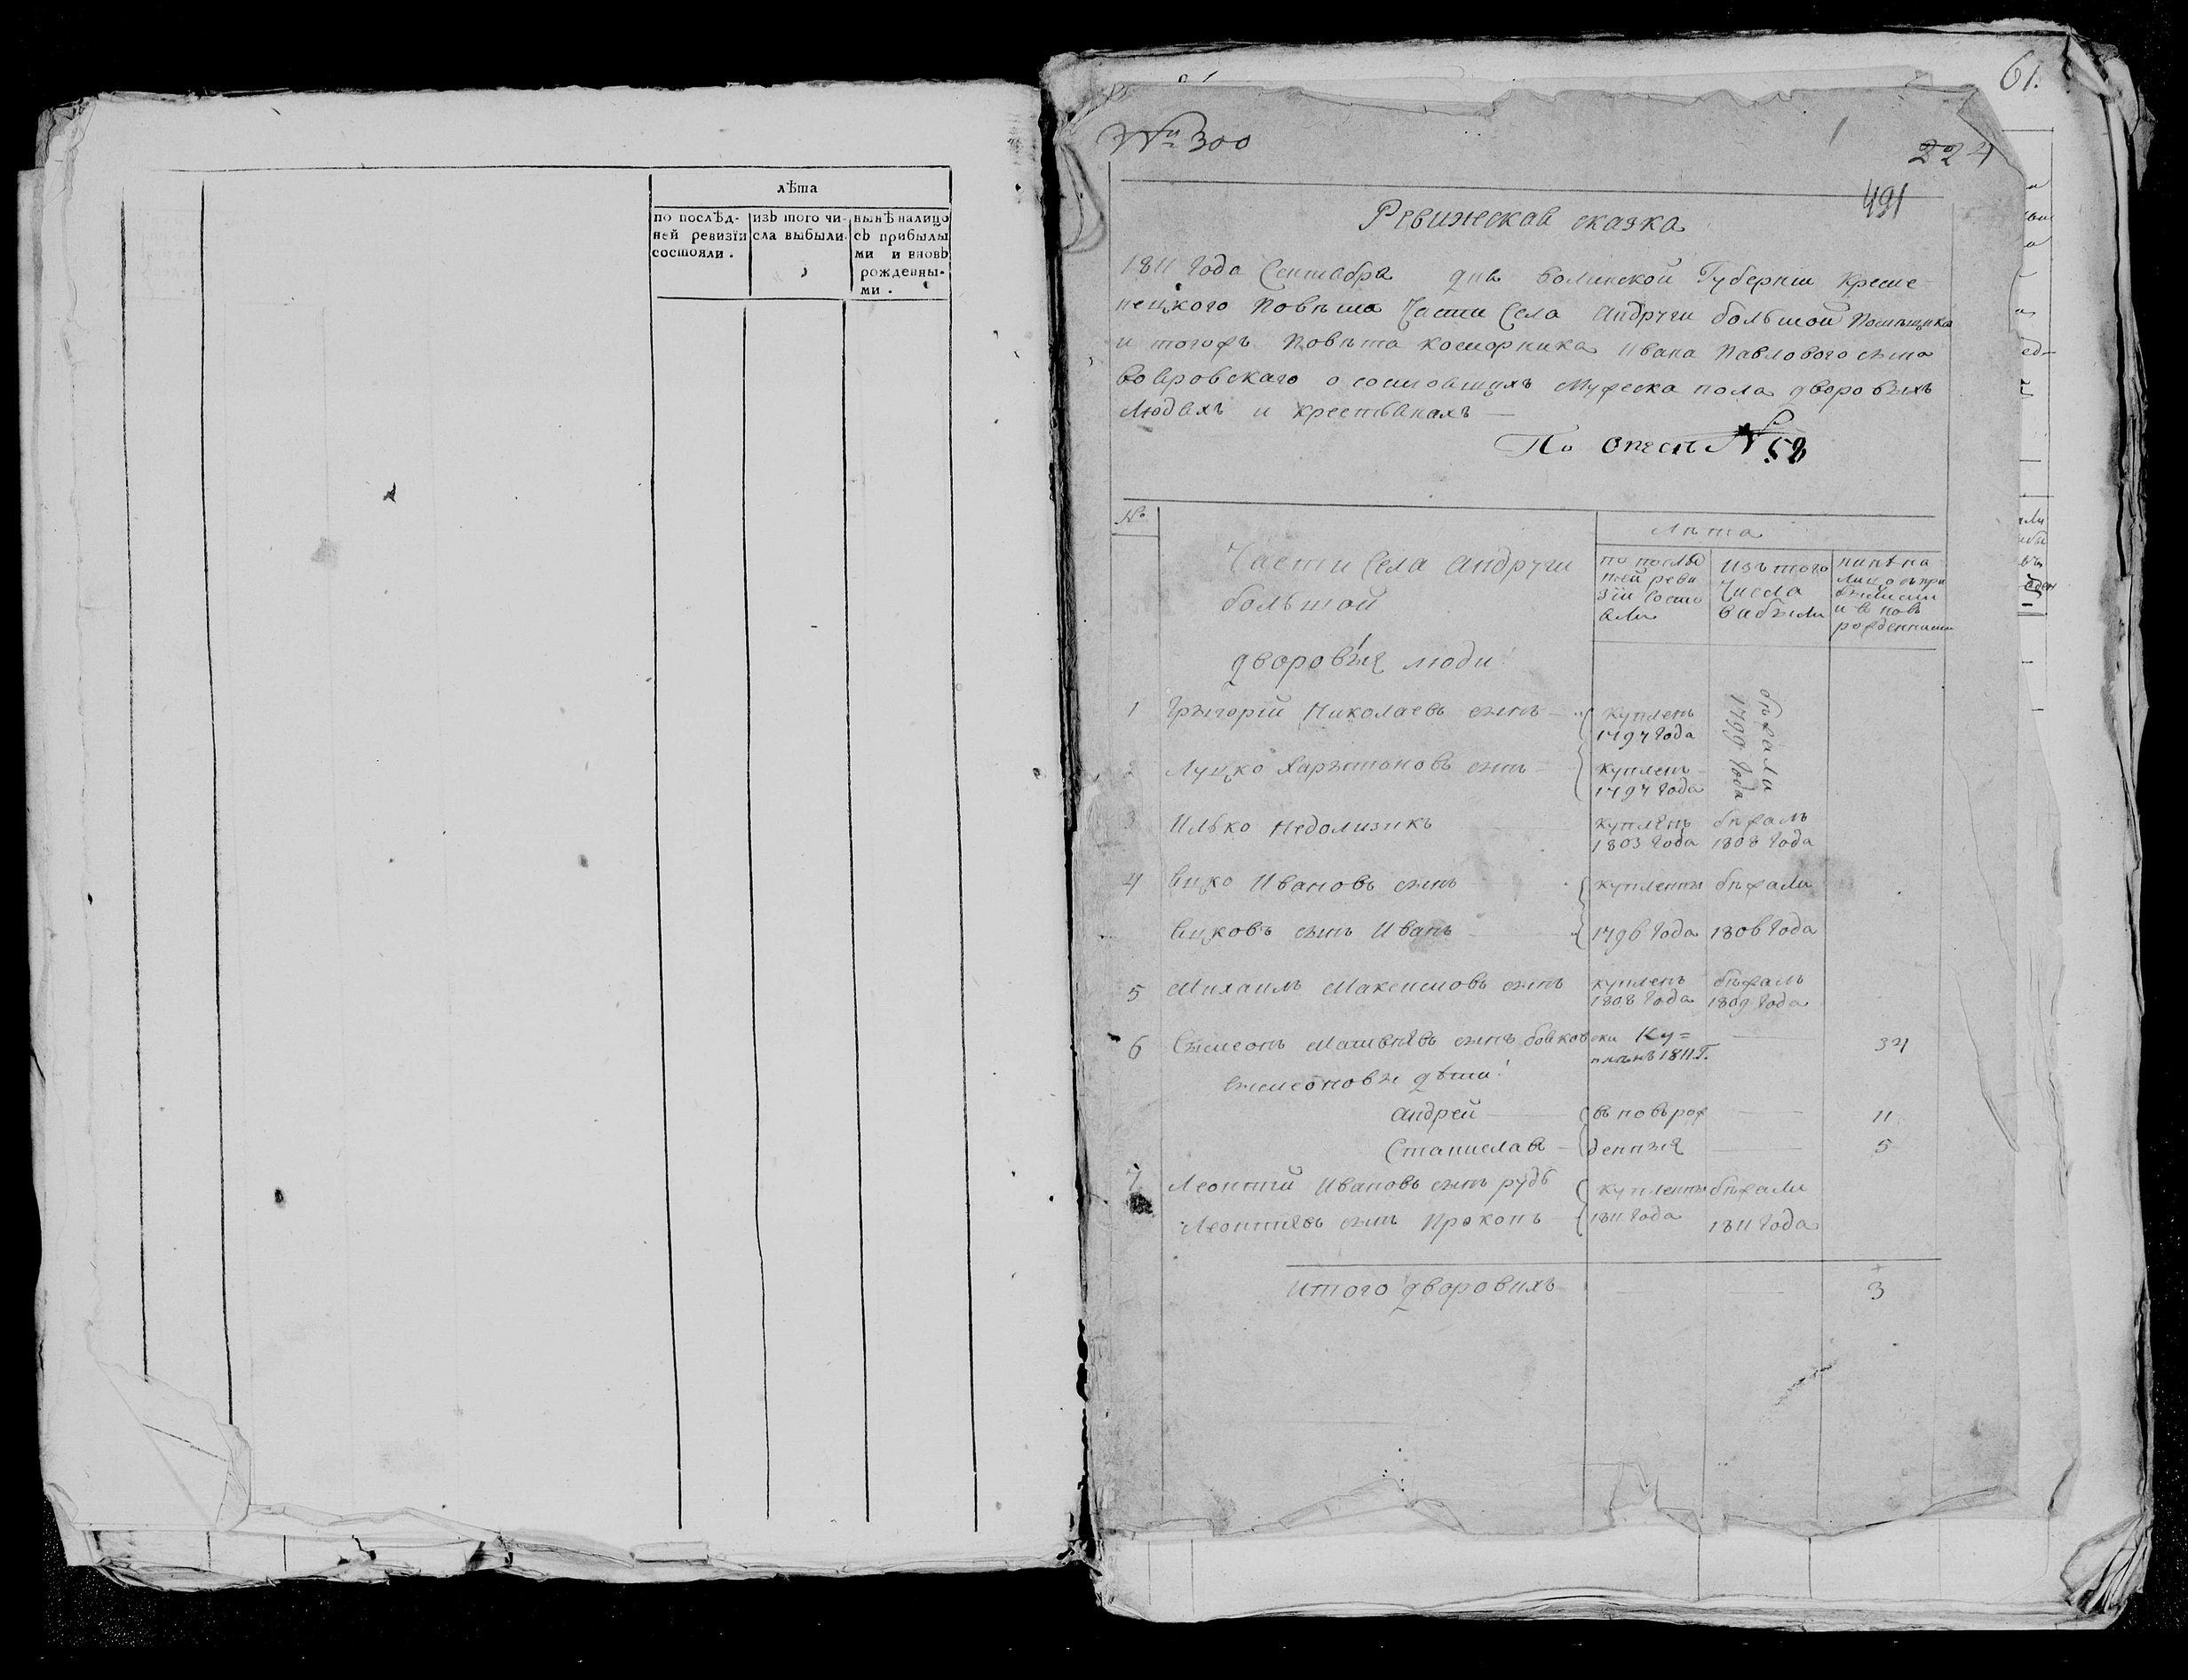 лѣта
по послѣд-
ней ревизїи
состояли.
изъ того чи-
сла выбыли.
нынѣ налицо
съ прибылы
ми и вновь
рожденны-
ми.
61.
№ 300
224
491
Ревижская сказка
1811 года Сентября дня Волинской Губернїи Креме
нецкого Повѣта Части Села Андруги большой Помѣщика
и тогожъ Повѣта коморника Ивана Павлового сына
о состоящихъ Мужеска пола дворовыхъ
Людяхъ и крестьянахъ —
По описѣ № 58
№
Части Села Андруги
большой
Лѣта
по послѣд
ней реви
зїи состо
яли
Изъ того
Числа
вибыли
нинѣ на
лицо съ при
былими
и в новь
рожденними
дворовыя люди
1 Грыгорїй Николаевъ сынъ — куплень 1797 года
бѣжали 1799 года
2 Луцко Харытоновъ сынъ — куплень 1797 года
3 Илько Недолизикъ куплѣнъ 1803 года бѣжалъ 1808 года
4 Ицко Ивановъ сынъ куплены бѣжали
Ицковъ сынъ Иванъ — 1796 года 1806 года
5 Михаилъ Максимовъ сынъ купленъ 1808 года бѣжалъ 1809 года
6 Сымеонъ Матвѣевъ сынъ Ку=
плѣнъ 1811 Г. — 34
Сымеоновы дѣти
Андрей — в новь рож — 11
Станислав — денныя — 5
7 Леонтїй Ивановъ сынъ рудь куплены бѣжали
Леонтїевъ сынъ Прокопъ 1811 года 1811 года
Итого дворовихъ — — 3